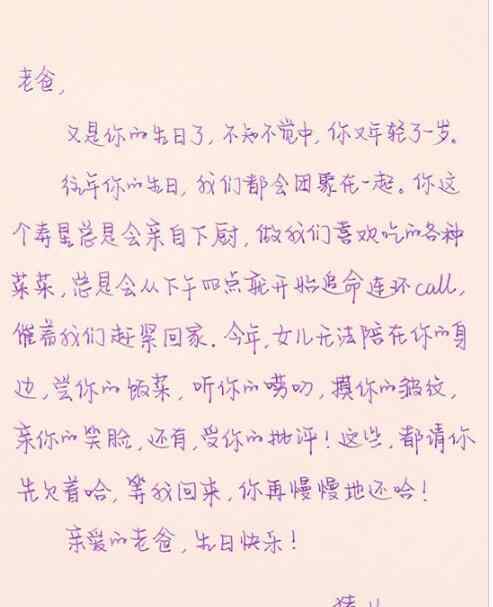 老爸,
又是你的生日了,不知不觉中,你又年轻了一岁。
往年你的生日,我们都会团聚在一起。你这
个寿星总是会亲自下厨,做我们喜欢吃的各种
菜菜,总是会从下午四点就开始追命连环call,
催着我们赶紧回家.今年,女儿无法陪在你的身
边,尝你的饭菜,听你的唠叨,摸你的皱纹,
亲你的笑脸,还有,受你的批评!这些,都请你
先欠着哈,等我回来,你再慢慢地还哈!
亲爱的老爸,生日快乐!